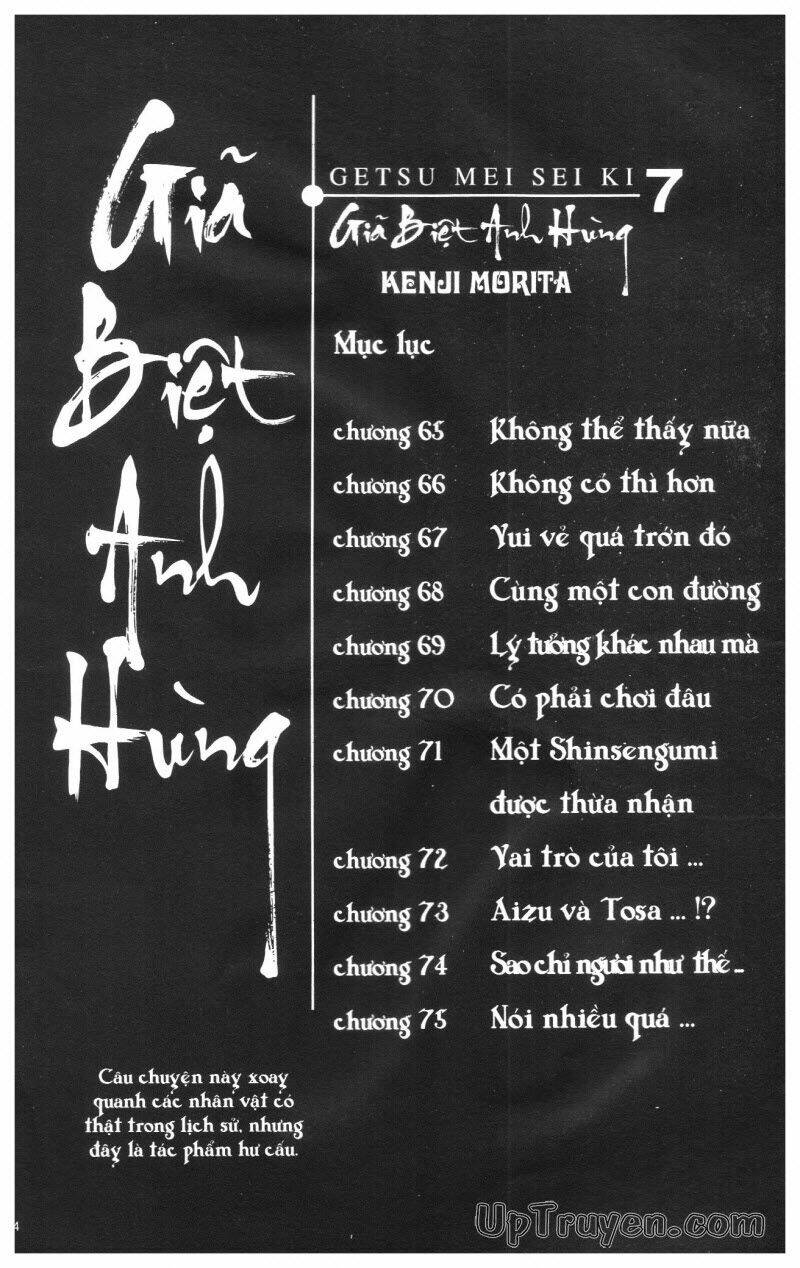 Giã
Biệt
Anh
Hùng
GETSU MEI SEI KI 7
Giã Biệt Anh Hùng
KENJI MORITA
Mục lục
chương 65 Không thể thấy nữa
chương 66 Không có thì hơn
chương 67 Vui vẻ quá trớn đó
chương 68 Cùng một con đường
chương 69 Lý tưởng khác nhau mà
chương 70 Có phải chơi đâu
chương 71 Một Shinsengumi
được thừa nhận
chương 72 Vai trò của tôi ...
chương 73 Aizu và Tosa ... !?
chương 74 Sao chỉ người như thế ...
chương 75 Nói nhiều quá ...
Câu chuyện này xoay
quanh các nhân vật có
thật trong lịch sử, nhưng
đây là tác phẩm hư cấu.
4
UpTruyen.com